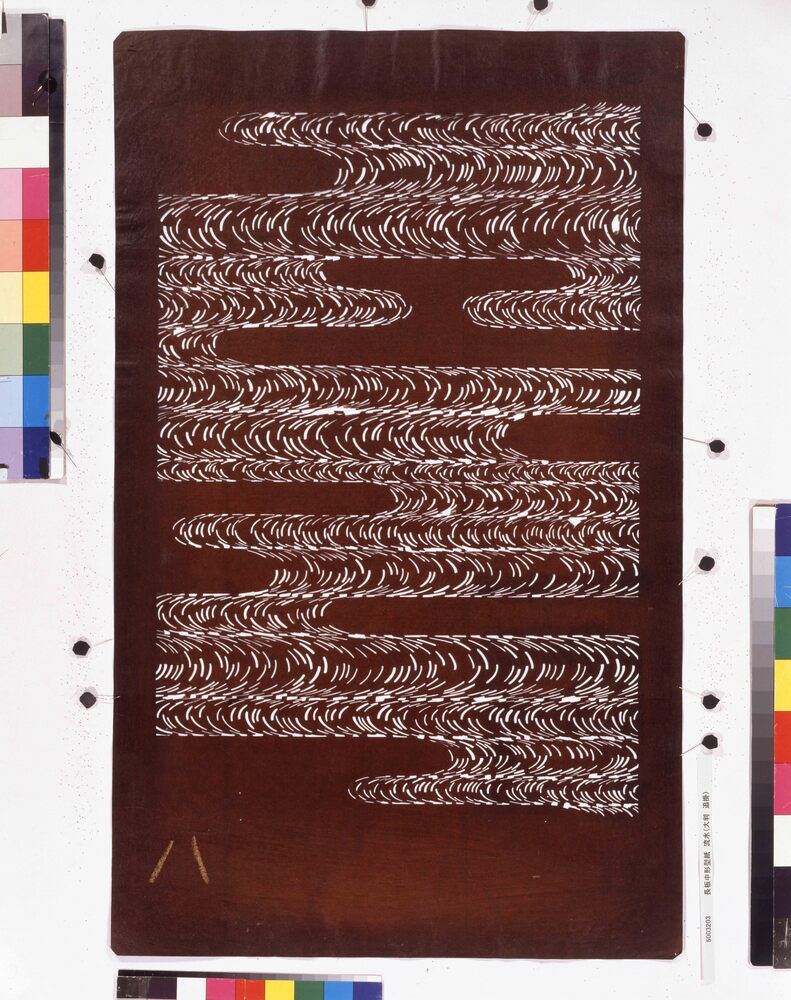 八
5003203 長板中形型紙 流水(大判 追掛)